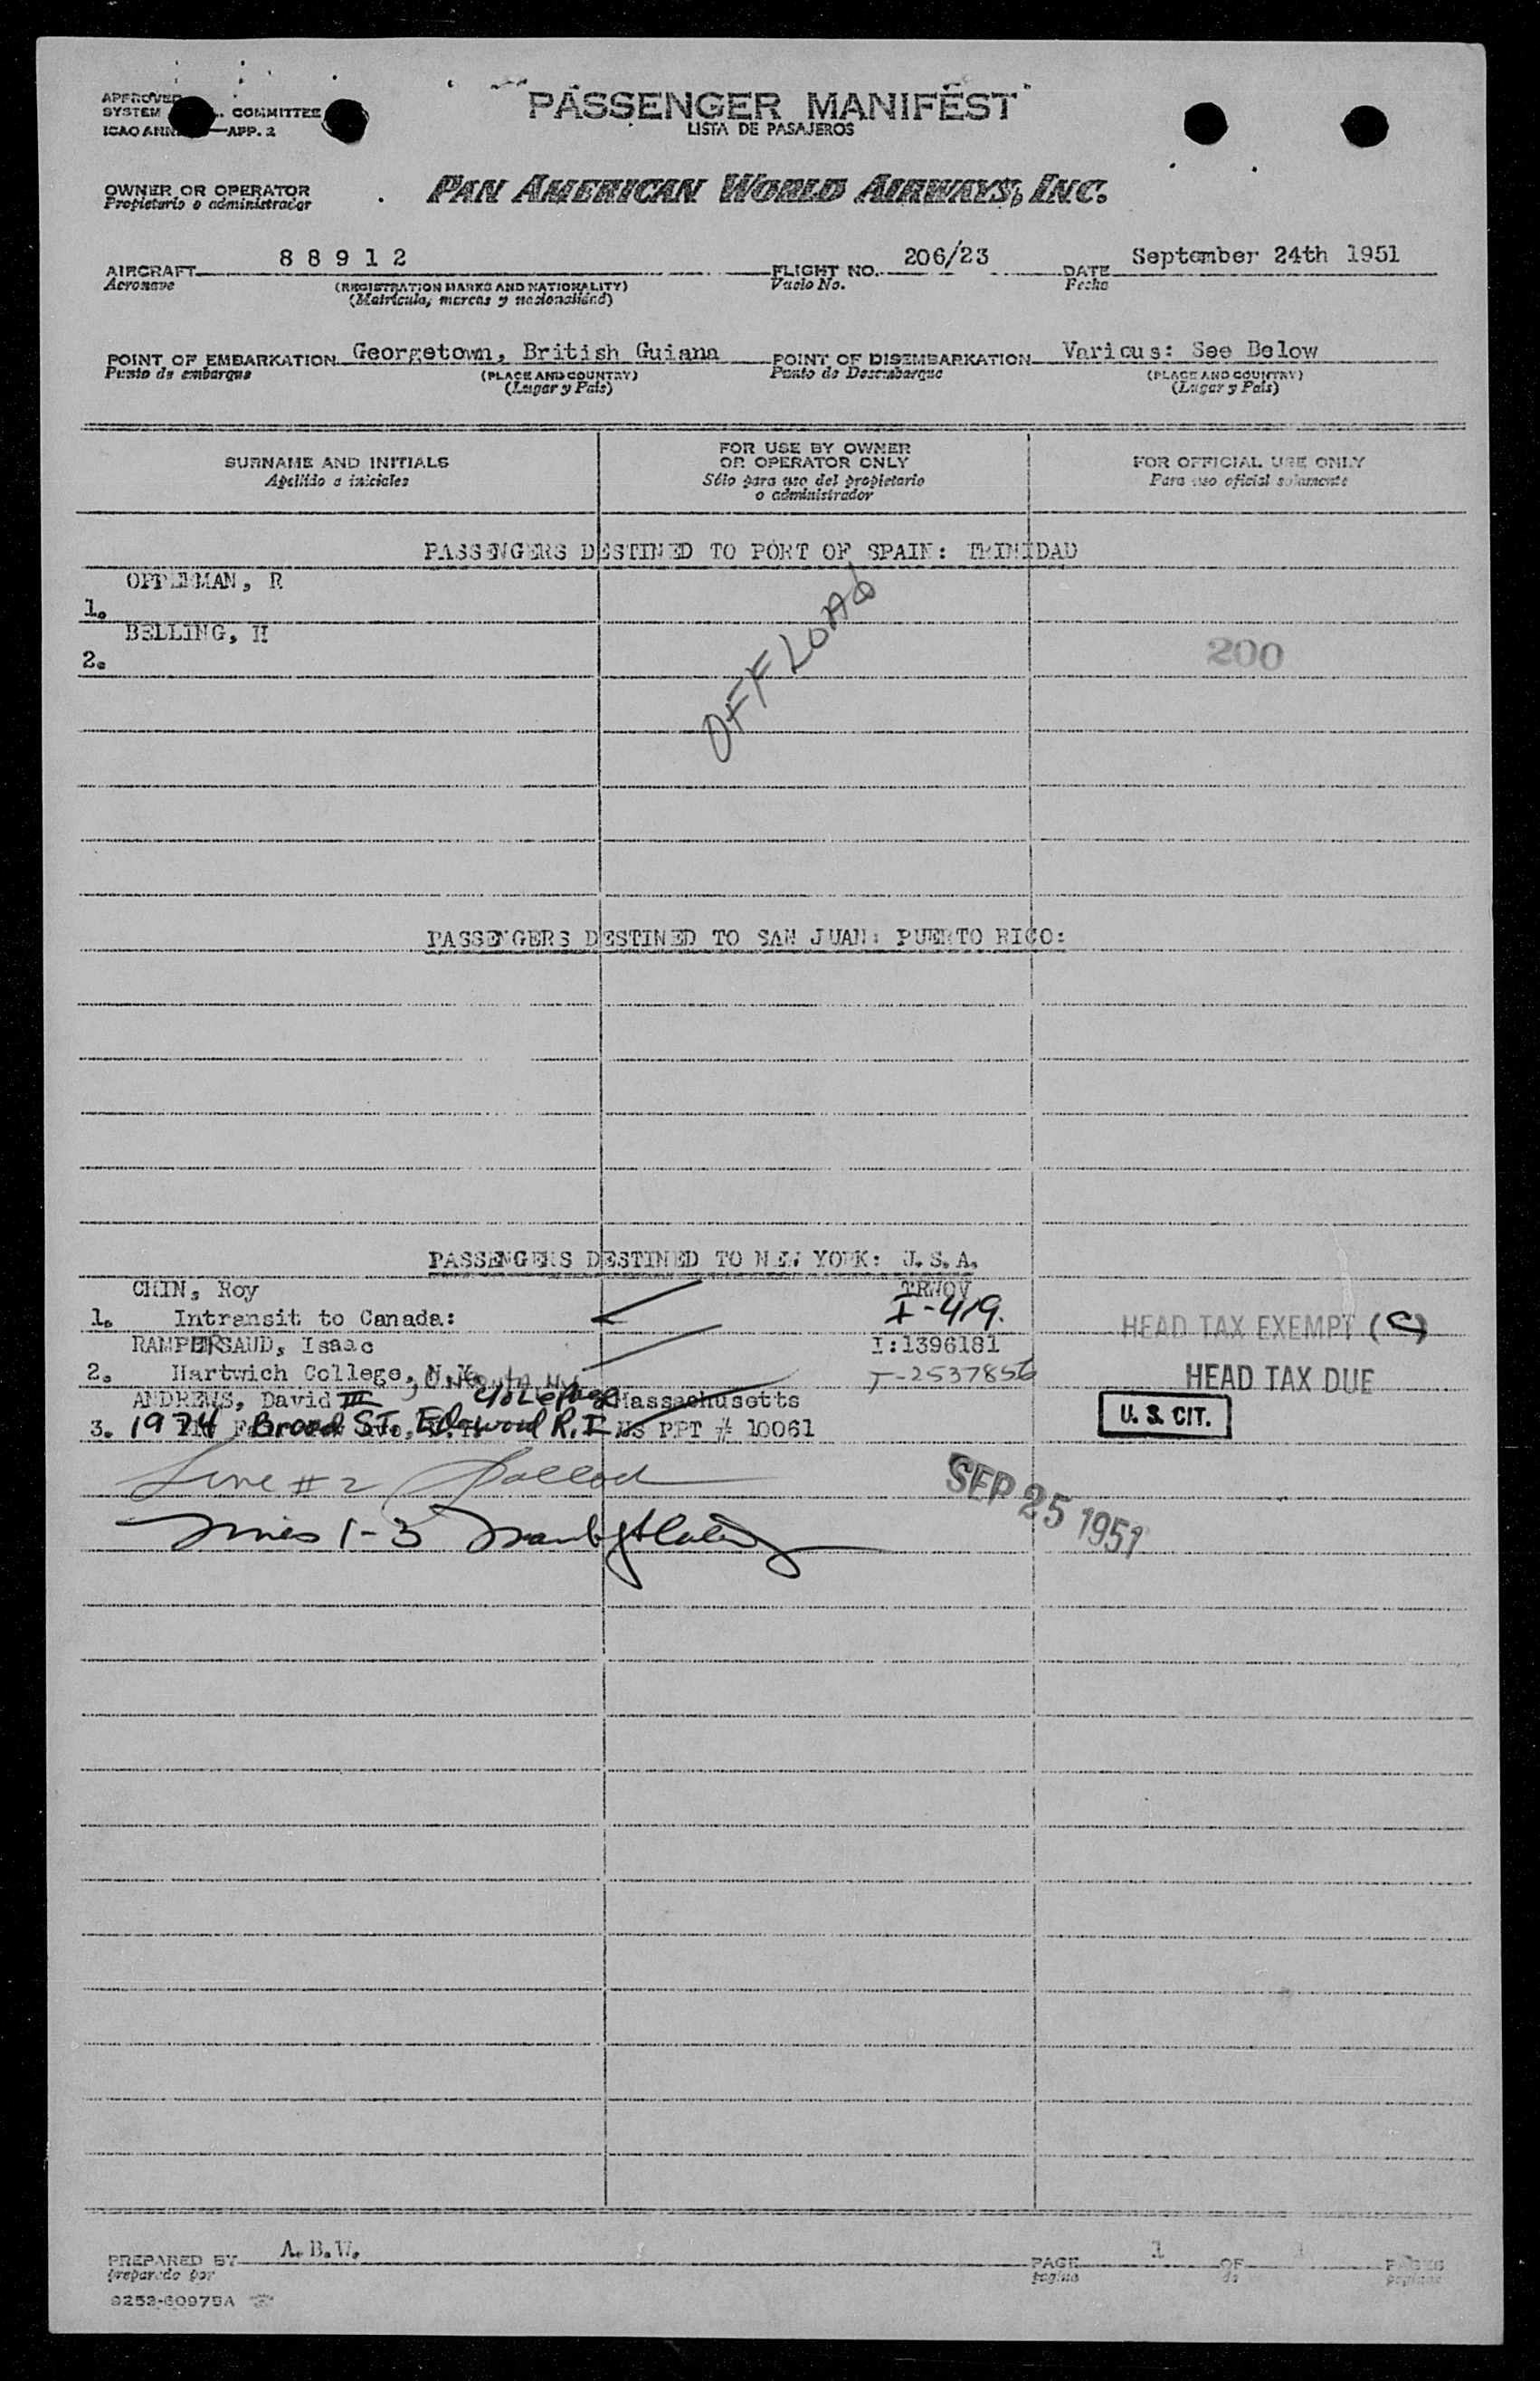 APPROVED
SYSTEM COMMITTEE
ICAO ANN —APP. 2
PASSENGER MANIFEST
LISTA DE PASAJEROS
OWNER OR OPERATOR
Propietario o administrador
PAN AMERICAN WORLD AIRWAYS, INC.
AIRCRAFT 8 8 9 1 2 FLIGHT NO. 206/23 DATE September 24th 1951
Aeronave (REGISTRATION MARKS AND NATIONALITY) Vuelo No. Fecha
(Matricula, marcas y nacionalidad)
POINT OF EMBARKATION Georgetown, British Guiana POINT OF DISEMBARKATION Various: See Below
Punto de embarque (PLACE AND COUNTRY) Punto de Desembarque (PLACE AND COUNTRY)
(Lugar y País) (Lugar y País)
SURNAME AND INITIALS
Apellido e iniciales
FOR USE BY OWNER
OR OPERATOR ONLY
Sólo para uso del propietario
o administrador
FOR OFFICIAL USE ONLY
Para uso oficial solamente
PASSENGERS DESTINED TO PORT OF SPAIN: TRINIDAD
OPPLEMAN, R
1.
BELLING, H
2.
OFF LOAD
200
PASSENGERS DESTINED TO SAN JUAN: PUERTO RICO:
PASSENGERS DESTINED TO NEW YORK: U.S.A.
CHIN, Roy TRWOV
1. Intransit to Canada: I-419. HEAD TAX EXEMPT (C)
RAMPERSAUD, Isaac I:1396181
2. Hartwich College, N.Y. Oneonta NY T-2537856 HEAD TAX DUE
ANDREWS, David III Massachusetts
3. 1974 Broad ST. Edgwood R.I US PPT # 10061 U. S. CIT.
Line #2
Lines 1-3
SEP 25 1951
PREPARED BY A.B.W. PAGE 1 OF 1 PAGES
preparado por página de páginas
9253-60975A